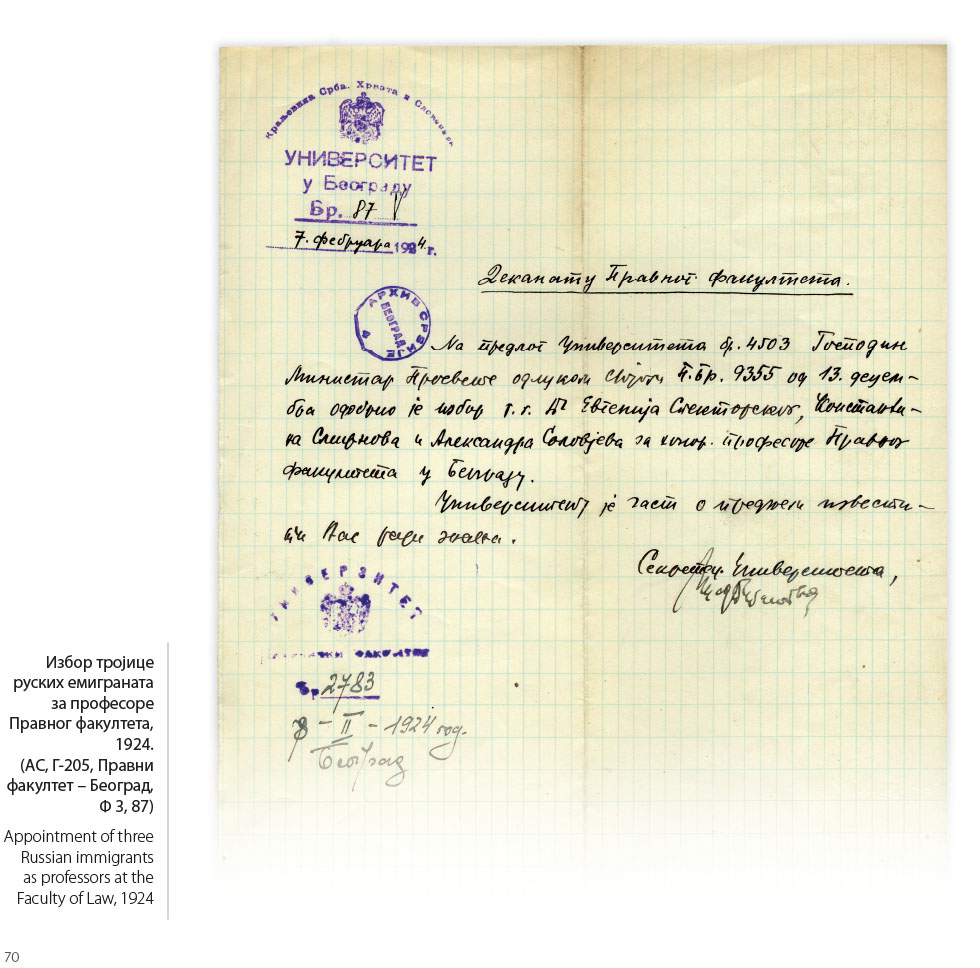 Краљевина Срба, Хрвата и Словенаца
УНИВЕРСИТЕТ
у Београду
Бр. 87
7. фебруара 1924 г.
Деканату Правног факултета.
АРХИВ СРБИЈЕ
БЕОГРАД
На предлог Универзитета бр. 4503 Господин
Министар Просвете одлуком својом П.Бр. 9355 од 13. децем-
бра одобрио је избор г. г. Др Евгенија Спекторског, Константи-
на Смирнова и Александра Соловјева за хонор. професоре Правног
факултета у Београду.
Универзитету је част о предњем извести-
ти Вас ради знања.
Секретар Универзитета,
УНИВЕРЗИТЕТ
ФАКУЛТЕТ
Бр. 2783
8 – II – 1924 год.
Београд
Избор тројице
руских емиграната
за професоре
Правног факултета,
1924.
(АС, Г-205, Правни
факултет – Београд,
Ф 3, 87)
Appointment of three
Russian immigrants
as professors at the
Faculty of Law, 1924
70